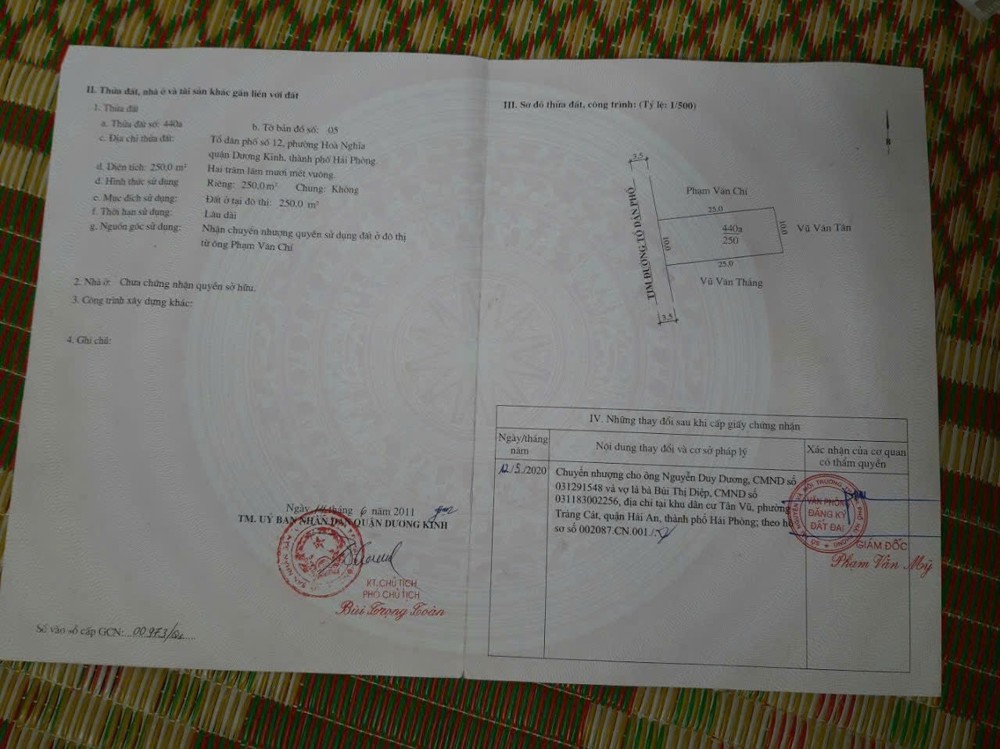 II. Thửa đất, nhà ở và tài sản khác gắn liền với đất
1. Thửa đất
a. Thửa đất số: 440a b. Tờ bản đồ số: 05
c. Địa chỉ thửa đất: Tổ dân phố số 12, phường Hoà Nghĩa
quận Dương Kinh, thành phố Hải Phòng.
d. Diện tích: 250,0 m² Hai trăm lăm mươi mét vuông.
đ. Hình thức sử dụng Riêng: 250,0 m² Chung: Không
e. Mục đích sử dụng: Đất ở tại đô thị: 250,0 m²
f. Thời hạn sử dụng: Lâu dài
g. Nguồn gốc sử dụng: Nhận chuyển nhượng quyền sử dụng đất ở đô thị
từ ông Phạm Văn Chí
2. Nhà ở: Chưa chứng nhận quyền sở hữu.
3. Công trình xây dựng khác:
4. Ghi chú:
Ngày tháng 6 năm 2011
TM. UỶ BAN NHÂN DÂN QUẬN DƯƠNG KINH
KT. CHỦ TỊCH
PHÓ CHỦ TỊCH
Bùi Trọng Toàn
Số vào sổ cấp GCN: 00973
III. Sơ đồ thửa đất, công trình: (Tỷ lệ: 1/500)
B
3.5
Phạm Văn Chí
25.0
TIM ĐƯỜNG TỔ DÂN PHỐ
10.0
440a
250
10.0
Vũ Văn Tân
25.0
Vũ Văn Thắng
3.5
IV. Những thay đổi sau khi cấp giấy chứng nhận
Ngày/tháng
năm
Nội dung thay đổi và cơ sở pháp lý
Xác nhận của cơ quan
có thẩm quyền
/5/2020
Chuyển nhượng cho ông Nguyễn Duy Dương, CMND số
031291548 và vợ là bà Bùi Thị Diệp, CMND số
031183002256, địa chỉ tại khu dân cư Tân Vũ, phường
Tràng Cát, quận Hải An, thành phố Hải Phòng; theo hồ
sơ số 002087.CN.001./.
VĂN PHÒNG
ĐĂNG KÝ
ĐẤT ĐAI
GIÁM ĐỐC
Phạm Văn Mỹ